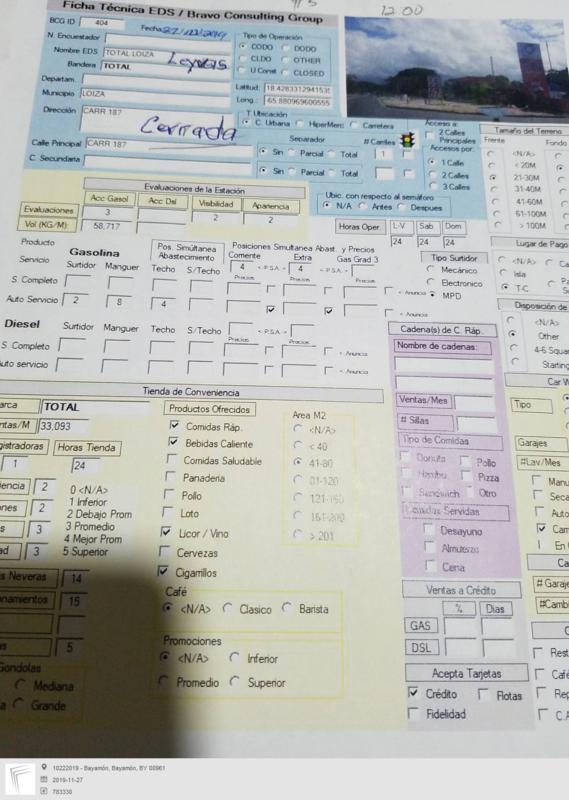 9/5 12:00
Ficha Técnica EDS / Bravo Consulting Group
BCG ID 404 Fecha
N. Encuestador
Nombre EDS TOTAL LOIZA
Bandera TOTAL
Departam.
Municipio LOIZA
Dirección CARR 187
Cerrada
Calle Principal CARR 187
C. Secundaria
Tipo de Operación
CODO DODO
CLDO OTHER
U Const CLOSED
Latitud: 18.4283312941535
Long.: 65.880969600555
T Ubicación
C. Urbana HiperMerc Carretera
Separador # Carriles
Sin Parcial Total 1
Sin Parcial Total
Acceso a:
2 Calles
Principales
Accesos por:
1 Calle
2 Calles
3 Calles
Ubic. con respecto al semáforo
N/A Antes Despues
Tamaño del Terreno
Frente Fondo
<N/A>
< 20M
21-30M
31-40M
41-60M
61-100M
> 100M
Evaluaciones de la Estación
Acc Gasol Acc Dsl Visibilidad Apariencia
Evaluaciones 3 2 2
Vol (KG/M): 58,717
Horas Oper L-V Sab Dom
24 24 24
Lugar de Pago
<N/A>
Isla
T-C
Tipo Surtidor
Mecánico
Electronico
MPD
Producto Gasolina
Servicio Surtidor Manguer
Pos. Simultánea Abastecimiento
Techo S/Techo
Posiciones Simultanea Abast. y Precios
Corriente Extra Gas Grad 3
4 < P.S.A.> 4 < P.S.A.>
Precios Precios Precios
S. Completo < Anuncia
Auto Servicio 2 8 4 < Anuncia
Disposición de
<N/A>
Other
4-6 Squar
Starting
Diesel Surtidor Manguer Techo S/Techo < P.S.A.>
Precios Precios
S. Completo < Anuncia
uto servicio < Anuncia
Cadena(s) de C. Ráp.
Nombre de cadenas:
Ventas/Mes
# Sillas
Tipo de Comidas
Donuts Pollo
Hambu Pizza
Sandwich Otro
Comidas Servidas
Desayuno
Almuerzo
Cena
Car W
Tipo
Garajes
#Lav/Mes
Manu
Seca
Auto
Cam
En
Tienda de Conveniencia
arca TOTAL
ntas/M 33,093
gistradoras Horas Tienda
1 24
iencia 2
nes 2
s 3
ad 3
0 <N/A>
1 Inferior
2 Debajo Prom
3 Promedio
4 Mejor Prom
5 Superior
s Neveras 14
onamientos 15
as 5
Gondolas
Mediana
a Grande
Productos Ofrecidos
Comidas Ráp.
Bebidas Caliente
Comidas Saludable
Panaderia
Pollo
Loto
Licor / Vino
Cervezas
Cigarrillos
Area M2
<N/A>
< 40
41-80
81-120
121-160
161-200
> 201
Café
<N/A> Clasico Barista
Promociones
<N/A> Inferior
Promedio Superior
Ventas a Crédito
% Dias
GAS
DSL
Acepta Tarjetas
Crédito Flotas
Fidelidad
Ca
# Garaje
#Cambi
Rest
Café
Rep
C.A
10222019 - Bayamón, Bayamón, BY 00961
2019-11-27
783330